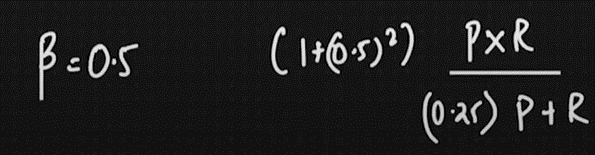 β = 0.5 (1+(0.5)²) P×R / (0.25) P+R